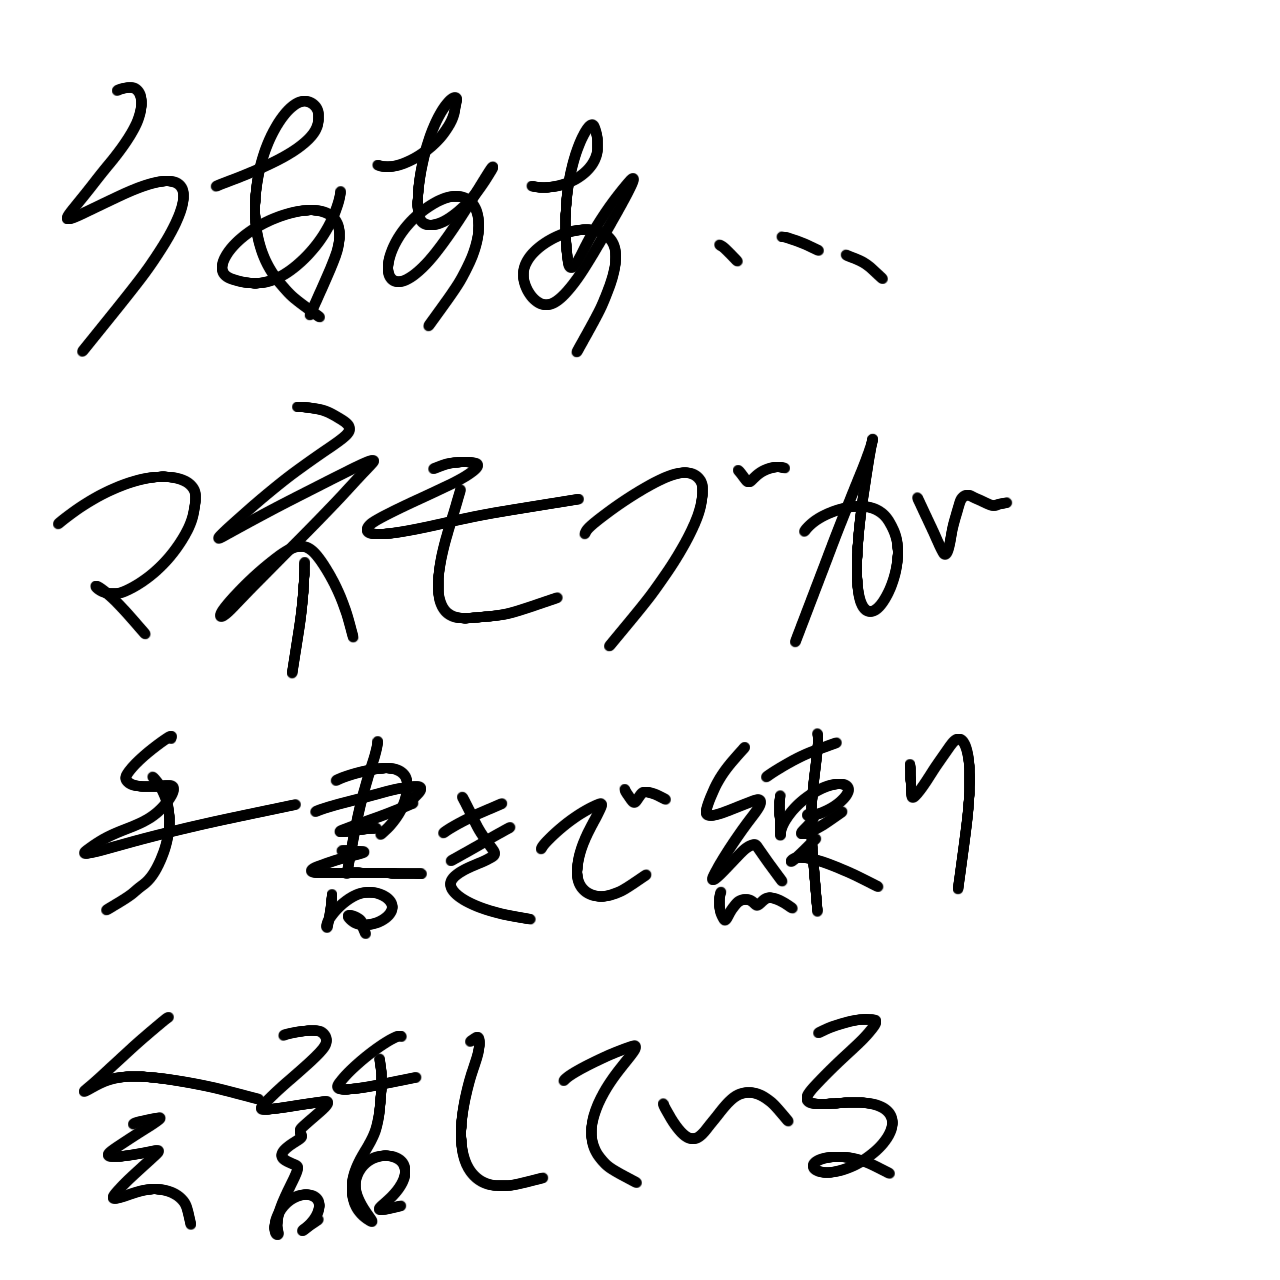 うあああ...
マネモブが
手書きで練り
会話している